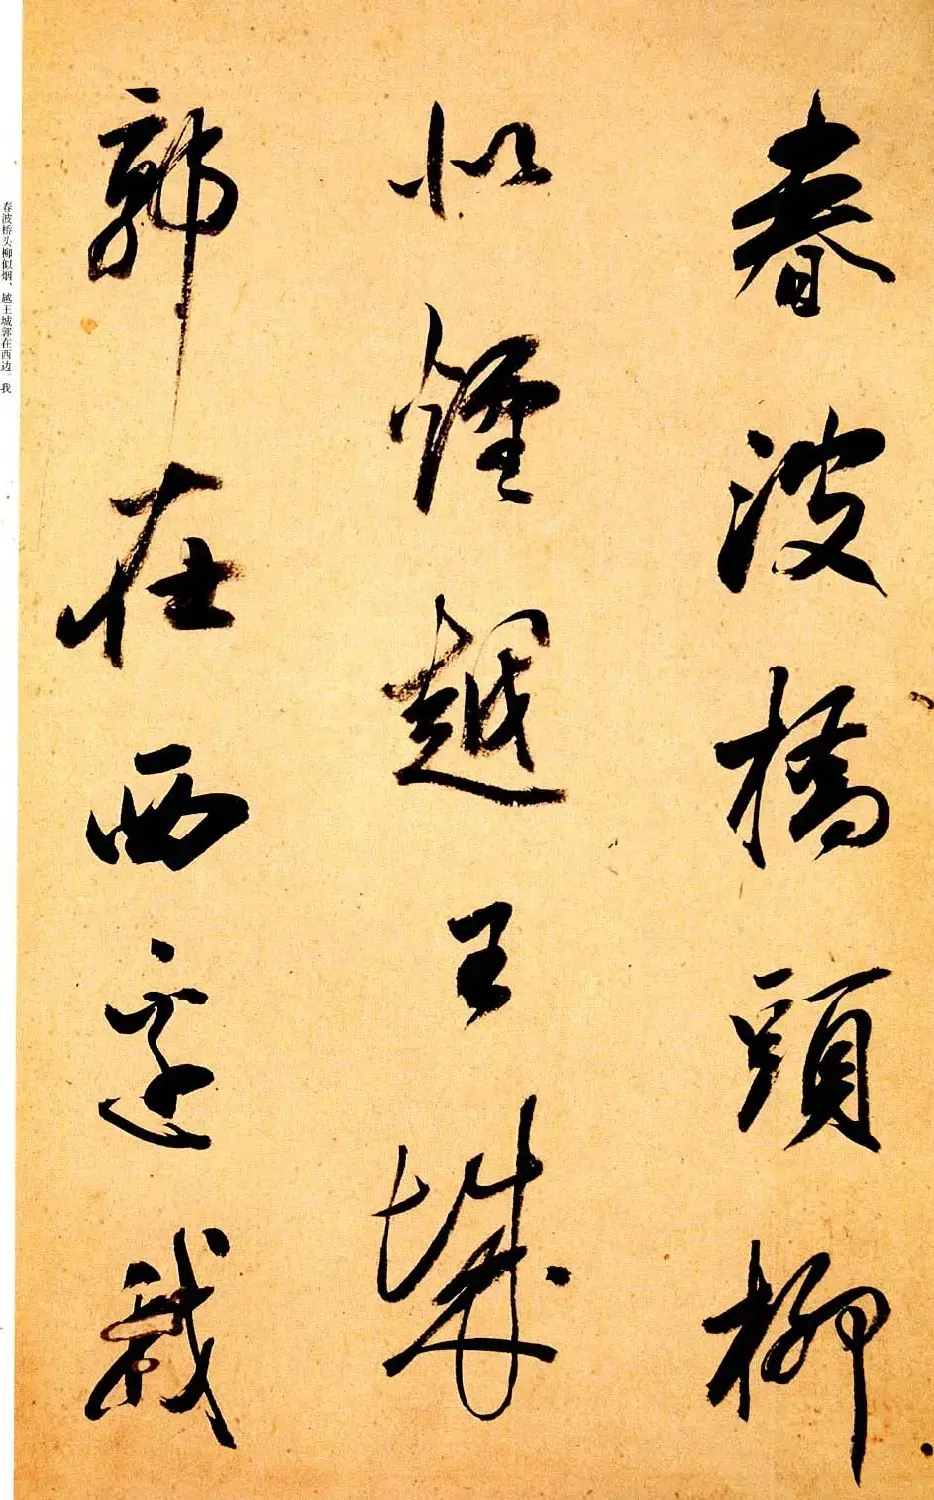 春波橋頭柳
似煙越王城
郭在西邊我
春波桥头柳似烟、越王城郭在西边。我